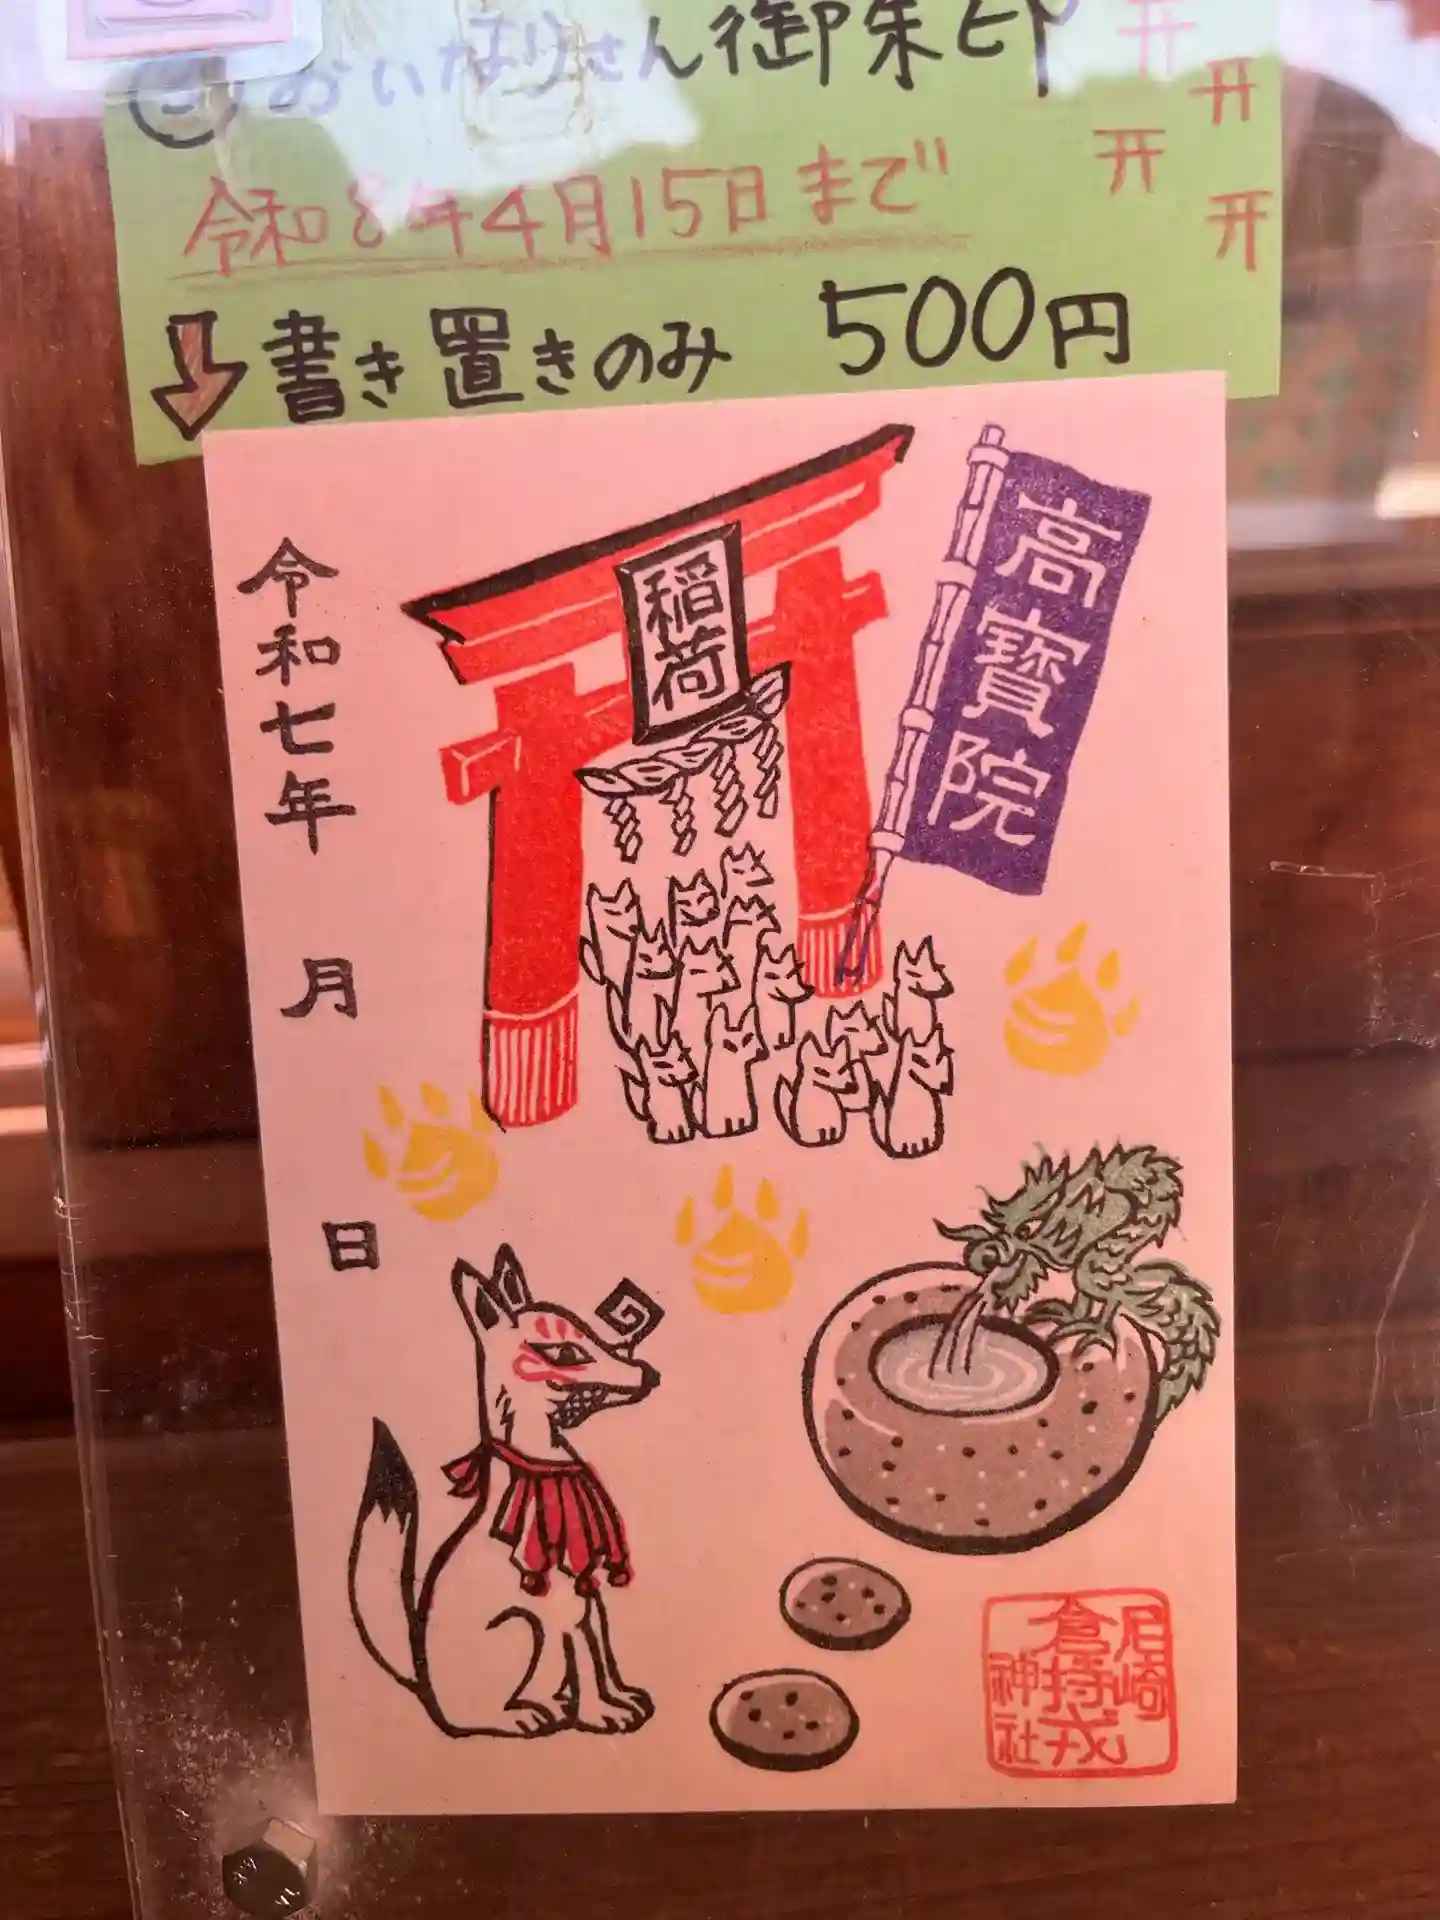 ㊁おいなりさん御朱印
令和8年4月15日まで
書き置きのみ 500円
稲荷
高寶院
令和七年 月 日
尼崎
倉持戎
神社